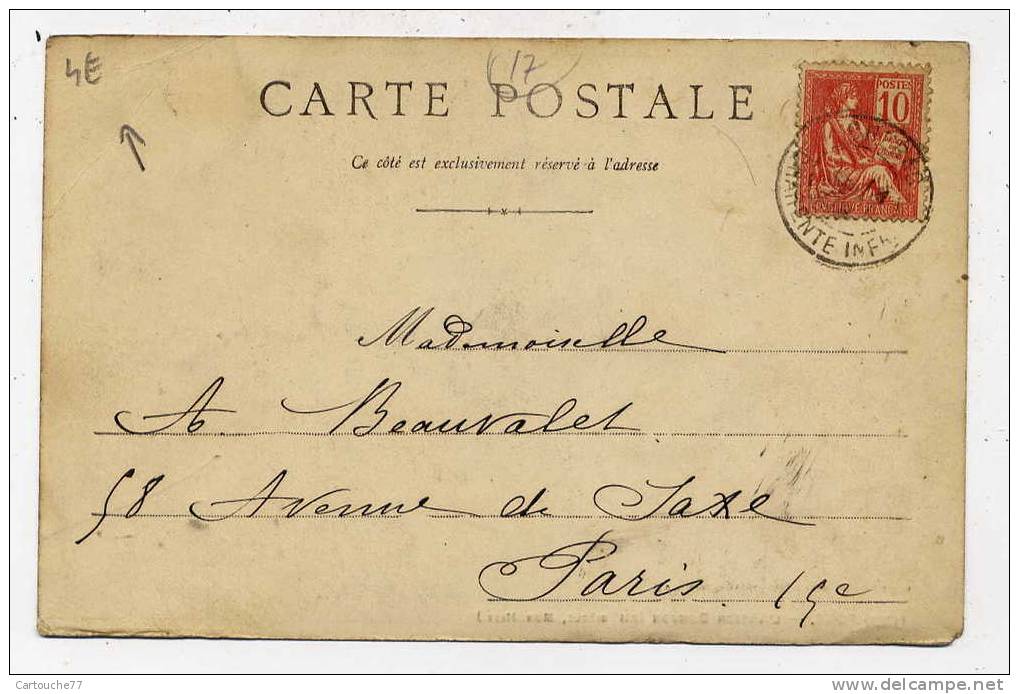 4E
17
CARTE POSTALE
Ce côté est exclusivement réservé à l'adresse
POSTES
10
CHARENTE INFRE
Mademoiselle
A. Beauvalet
58 Avenue de Saxe
Paris. 15e
Cartouche77
www.delcampe.net